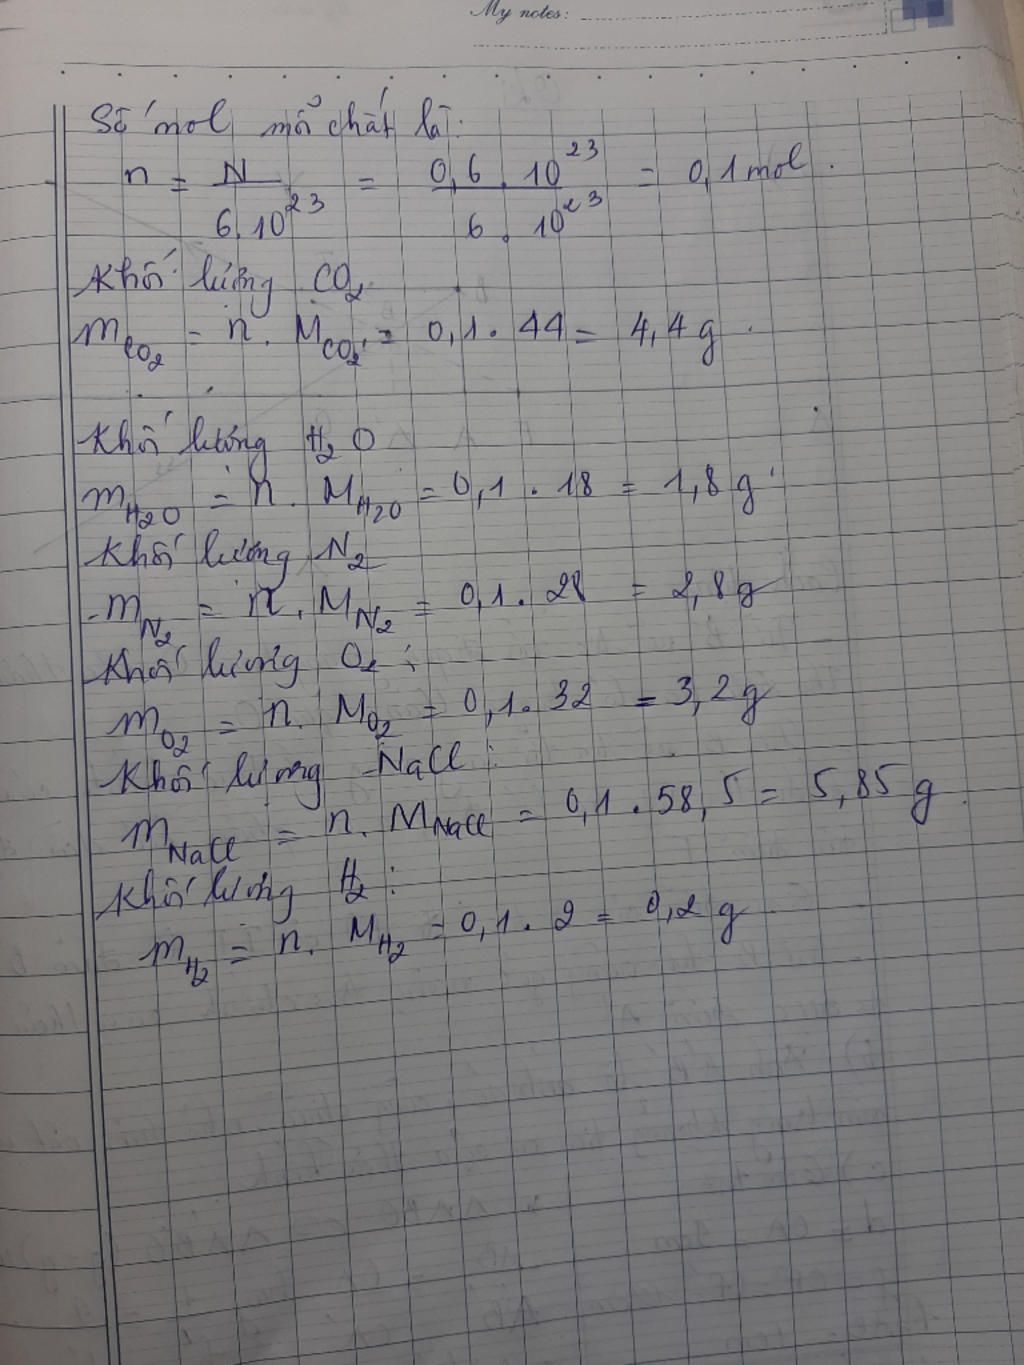 My notes:
Số mol mỗi chất là:
n = N / 6.10^23 = 0,6 . 10^23 / 6 . 10^23 = 0,1 mol.
Khối lượng CO2
mCO2 = n. MCO2 = 0,1. 44 = 4,4 g.
Khối lượng H2O
mH2O = n. MH2O = 0,1 . 18 = 1,8 g
Khối lượng N2
mN2 = n. MN2 = 0,1. 28 = 2,8g
Khối lượng O2:
mO2 = n. MO2 = 0,1. 32 = 3,2g
Khối lượng NaCl:
mNaCl = n. MNaCl = 0,1. 58,5 = 5,85 g.
Khối lượng H2:
mH2 = n. MH2 = 0,1. 2 = 0,2 g